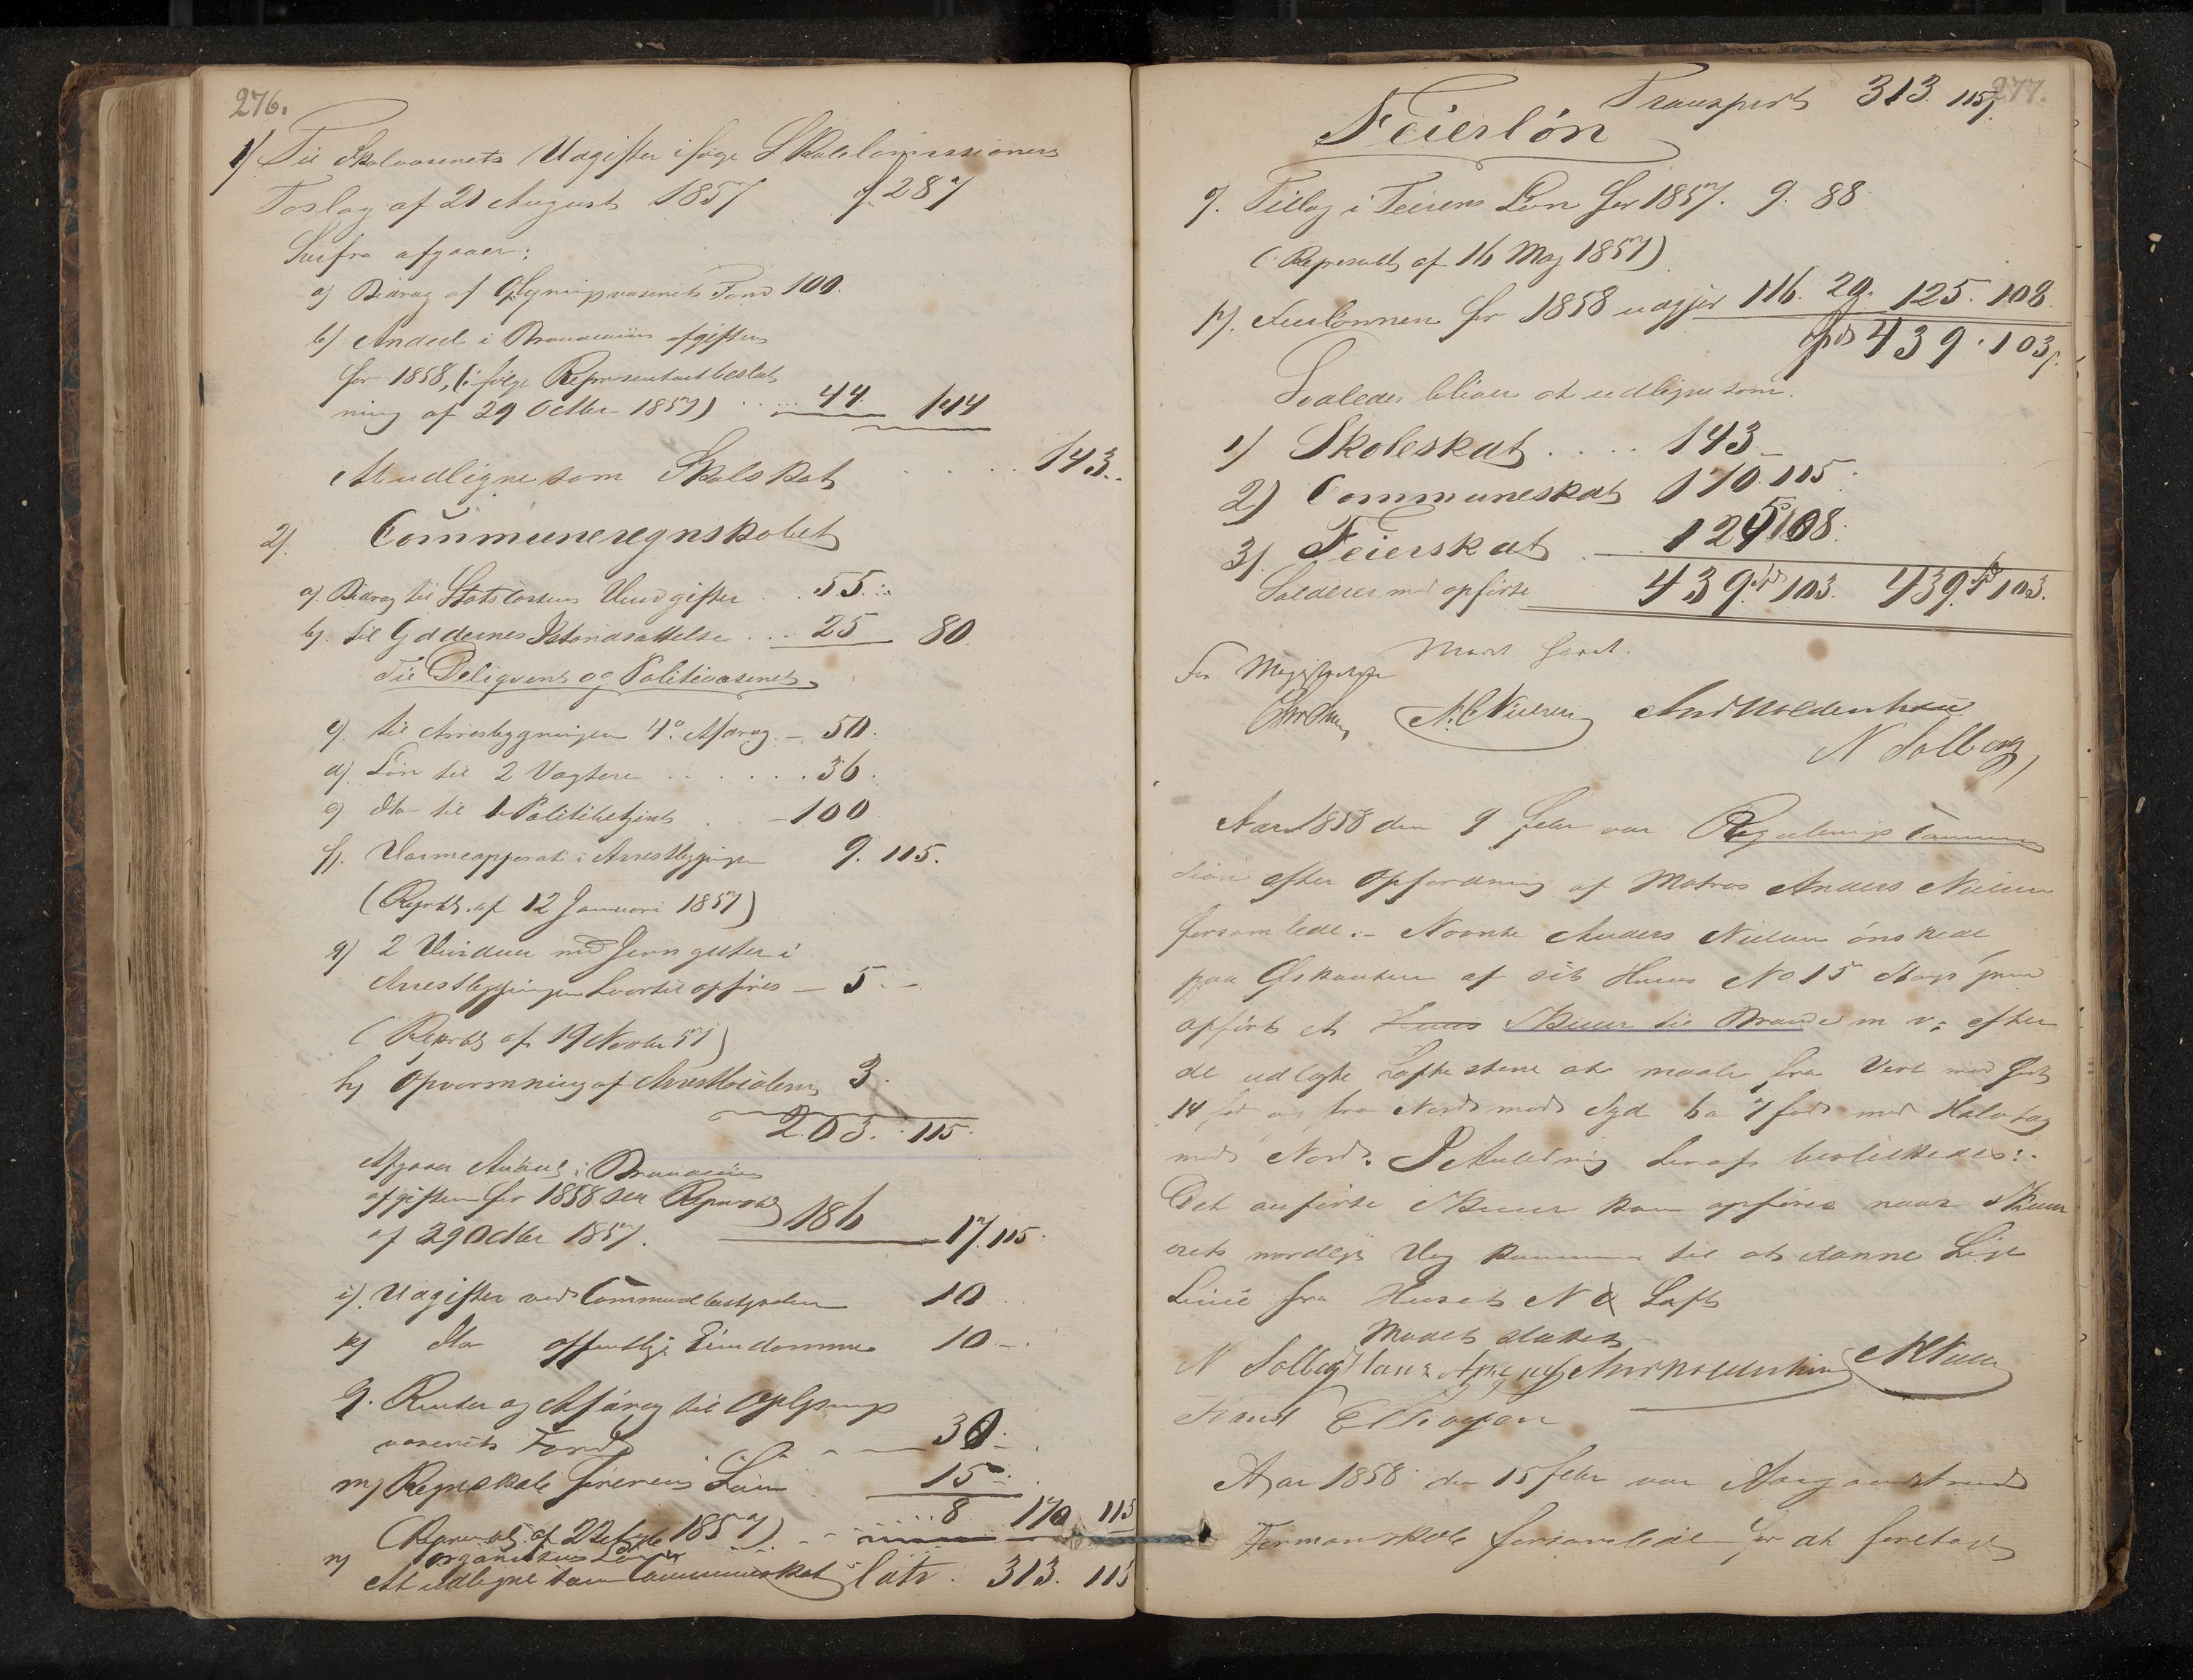 276.
1) Til Skolvæsenets Udgifter ifølge Skolekommissionens
Forslag af 21 August 1857 287
Herfra afgaaer:
a) Bidrag af Oplysningsvæsenets Fond 100.
b) Andeel i Brændeviins afgiften
for 1858, (ifølge Representantbeslut
ning af 29 Octbr 1857) .... 44 144
At udligne som Skoleskat .... 143..
2). Communeregnskabet
a). Bidrag til Statskassens Uudgifter . . 55.
b). til Gadernes Istandsættelse ... 25 80.
Til Deliqvent og Politivæsenet
c). til Arrestbygningen 4de Afdrag. – 50.
d). Løn til 2 Vægtere . . . . . . 36.
e) Do til 1 Politibetjent . – 100
f). Varmeapparat i Arrestbygningen 9. 115.
(Reprbs. af 12 Januari 1857)
g) 2 Vinduer med Jerngitter i
Arrestbygningen hvortil opføres – 5. –
(Reprbs af 19 Novbr 57)
h) Opvarmning af Arrestlocalerne 3.
203. 115.
Afgaaer Andeel i Brændeviins
afgiften for 1858 Reprbs
af 29 Octbr 1857. 186 17. 115.
i). Udgifter ved Communebestyrelsen 10
k) Do offentlige Eiendomme 10 –
l. Renter og Afdrag til Oplysnings
væsenets Fond – – 30.
m) Regnskabsførerens Løn 15 –
(Reprbs. af 22 1857) . 8 170 115
n) Organistens Løn
At udligne som Communeskat lats. 313. 115
277.
Transport 313. 115
Feierløn
o). Tillæg i Feierens Løn for 1857. 9. 88.
(Represbs af 16 Maj 1857)
p). Feierlønnen for 1858 udgjør 116. 20. 125. 108.
Spd 439. 103.
Saaledes bliver at udligne som.
1) Skoleskat . . . . 143 –
2) Communeskat 170. 115.
3). Feierskat . – 125 108.
Balderer med opførte 439. 103. 439. 103.
Mødet hævet.
For Magistraten
N. Nielsen
N Solberg
Aar 1858 den 9 Febr var Regulerings Commis
sion efter Opfordring af Matros Anders Nielsen
forsamlede. – Nævnte Anders Nielsen ønskede
paa Østkanten af sit Huus No 15
opført et Huus Skuur til Brænde m v: efter
de udlagte at maale fra Vest mod Øst
14 fod og fra Nord mod Syd 6 a 7 fod med Halvtag
mod Nord. I Anledning heraf besluttedes: –
Det anførte Skuur kan opføres naar Skuu
rets nordlige Væg kommer til at danne Lige
Linie fra Huset
Mødet sluttet
N Solberg
Aar 1858 den 15 Febr var
Formandskab forsamlede for at foretage